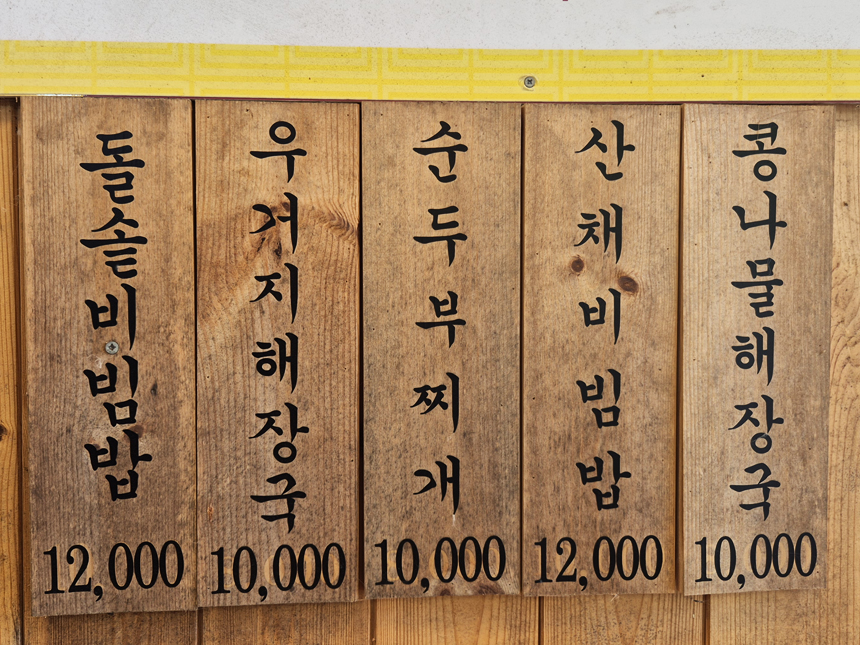 돌솥비빔밥
12,000
우거지해장국
10,000
순두부찌개
10,000
산채비빔밥
12,000
콩나물해장국
10,000